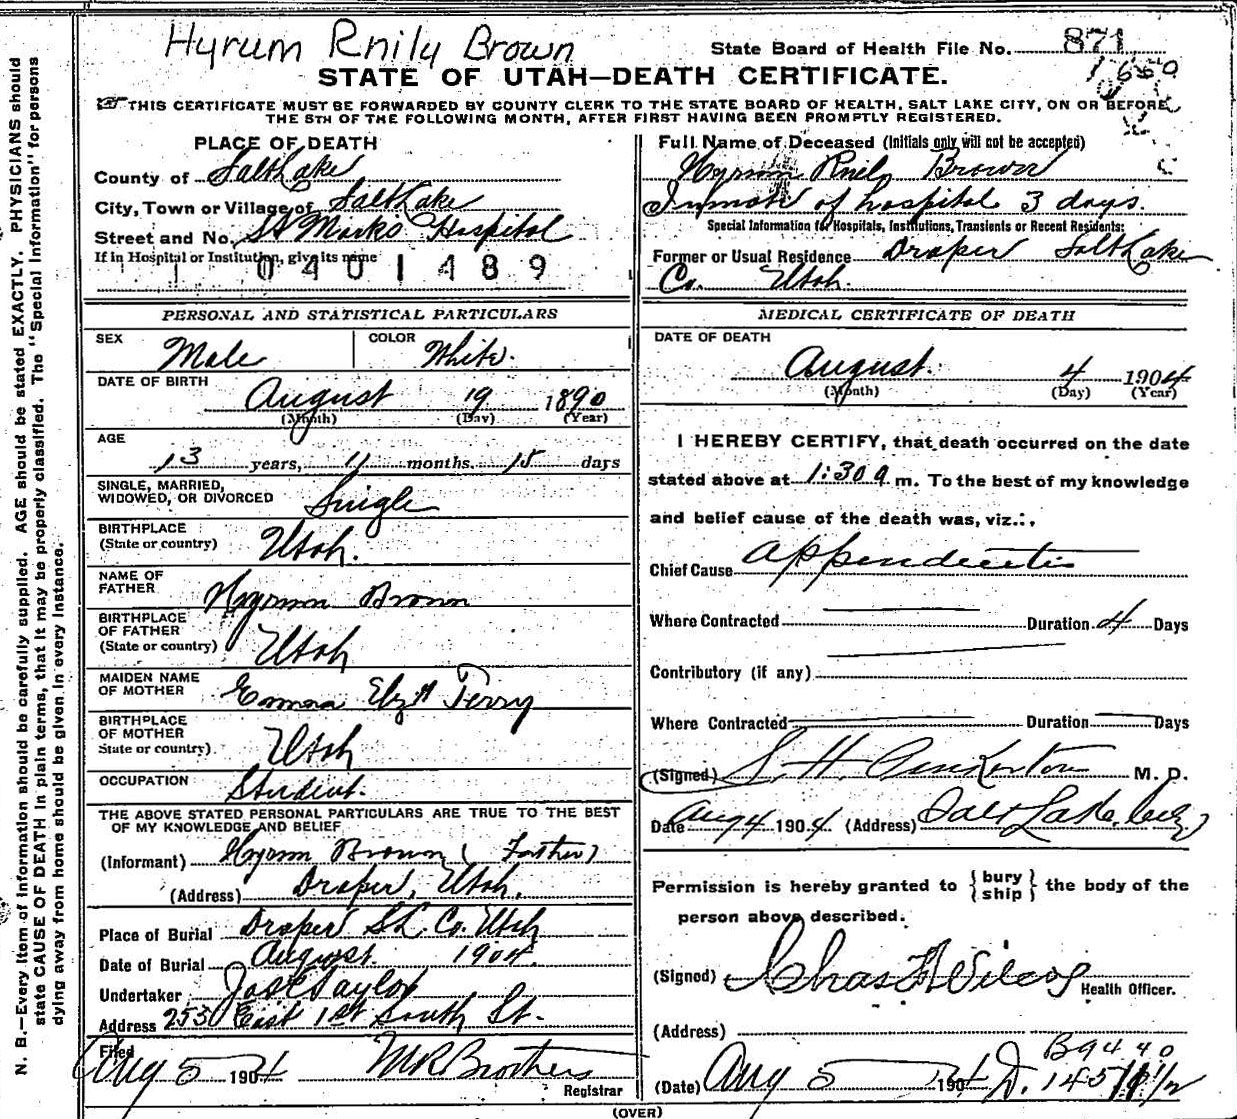 Hyrum Rnily Brown
State Board of Health File No. 871
1660
STATE OF UTAH—DEATH CERTIFICATE.
THIS CERTIFICATE MUST BE FORWARDED BY COUNTY CLERK TO THE STATE BOARD OF HEALTH, SALT LAKE CITY, ON OR BEFORE
THE 5TH OF THE FOLLOWING MONTH, AFTER FIRST HAVING BEEN PROMPTLY REGISTERED.
PLACE OF DEATH
County of Salt Lake
City, Town or Village of Salt Lake
Street and No. St Marks Hospital
If in Hospital or Institution, give its name
0401489
Full Name of Deceased (Initials only will not be accepted)
Hyrum Rnily Brown
Inmate of hospital 3 days.
Special Information for Hospitals, Institutions, Transients or Recent Residents:
Former or Usual Residence Draper Salt Lake
Co. Utah.
PERSONAL AND STATISTICAL PARTICULARS
SEX Male COLOR White.
DATE OF BIRTH
August 19 1890
(Month) (Day) (Year)
AGE
13 years, 11 months, 15 days
SINGLE, MARRIED,
WIDOWED, OR DIVORCED Single
BIRTHPLACE
(State or country) Utah.
NAME OF
FATHER Hyrum Brown
BIRTHPLACE
OF FATHER
(State or country) Utah
MAIDEN NAME
OF MOTHER Emma Elzth Terry
BIRTHPLACE
OF MOTHER
State or country) Utah
OCCUPATION Student.
THE ABOVE STATED PERSONAL PARTICULARS ARE TRUE TO THE BEST
OF MY KNOWLEDGE AND BELIEF
(Informant) Hyrum Brown (Father)
(Address) Draper, Utah.
Place of Burial Draper S.L. Co. Utah
Date of Burial August 1904.
Undertaker Jos E Taylor
Address 253 East 1st South St.
Filed
Aug 5 1904 M R Brothers
Registrar
MEDICAL CERTIFICATE OF DEATH
DATE OF DEATH
August. 4 1904
(Month) (Day) (Year)
I HEREBY CERTIFY, that death occurred on the date
stated above at 1:30 a m. To the best of my knowledge
and belief cause of the death was, viz.:,
Chief Cause Appendicitis
Where Contracted Duration 4 Days
Contributory (if any)
Where Contracted Duration Days
(Signed) S. H. Pinkerton M. D.
Date Aug 4 1904 (Address) Salt Lake City
Permission is hereby granted to { bury
ship } the body of the
person above described.
(Signed) Chas F Wilcox
Health Officer.
(Address)
B9440
(Date) Aug 5 1904 D. 145
(OVER)
N. B.—Every item of information should be carefully supplied. AGE should be stated EXACTLY. PHYSICIANS should
state CAUSE OF DEATH in plain terms, that it may be properly classified. The "Special Information" for persons
dying away from home should be given in every instance.